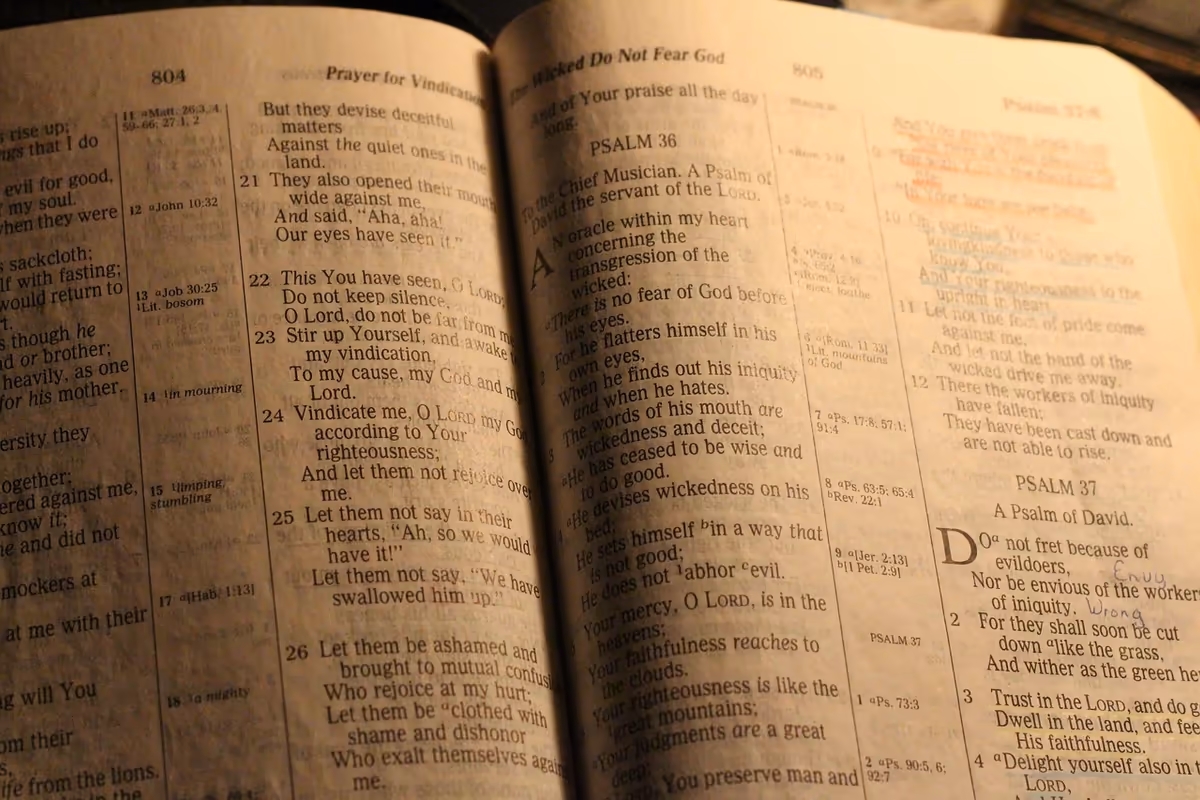 804
Prayer for Vindication
s rise up;
ngs that I do
evil for good,
f my soul.
when they were
sackcloth;
lf with fasting;
would return to
s though he
nd or brother;
heavily, as one
for his mother.
ersity they
ogether;
ered against me,
know it;
e and did not
mockers at
at me with their
g will You
om their
ife from the lions.
in the
11 aMatt. 26:3, 4,
59–66; 27:1, 2
12 aJohn 10:32
13 aJob 30:25
1Lit. bosom
14 1in mourning
15 1limping,
stumbling
17 a[Hab. 1:13]
18 1a mighty
But they devise deceitful
matters
Against the quiet ones in the
land.
21 They also opened their mouth
wide against me,
And said, “Aha, aha!
Our eyes have seen it.”
22 This You have seen, O LORD;
Do not keep silence.
O Lord, do not be far from m
23 Stir up Yourself, and awake
my vindication,
To my cause, my God and m
Lord.
24 Vindicate me, O LORD my Go
according to Your
righteousness;
And let them not rejoice over
me.
25 Let them not say in their
hearts, “Ah, so we would
have it!”
Let them not say, “We have
swallowed him up.”
26 Let them be ashamed and
brought to mutual confus
Who rejoice at my hurt;
Let them be aclothed with
shame and dishonor
Who exalt themselves again
me.
The Wicked Do Not Fear God
805
Psalm 37:4
And of Your praise all the day
long.
PSALM 36
To the Chief Musician. A Psalm of
David the servant of the LORD.
AN oracle within my heart
concerning the
transgression of the
wicked:
aThere is no fear of God before
his eyes.
2 For he flatters himself in his
own eyes,
When he finds out his iniquity
and when he hates.
3 The words of his mouth are
wickedness and deceit;
aHe has ceased to be wise and
to do good.
4 aHe devises wickedness on his
bed;
He sets himself bin a way that
is not good;
He does not 1abhor cevil.
5 Your mercy, O LORD, is in the
heavens;
Your faithfulness reaches to
the clouds.
Your righteousness is like the
great mountains;
aYour judgments are a great
deep;
You preserve man and
6 a[Rom. 11:33]
1Lit. mountains
of God
7 aPs. 17:8; 57:1;
91:4
8 aPs. 63:5; 65:4
bRev. 22:1
9 a[Jer. 2:13]
b[1 Pet. 2:9]
PSALM 37
1 aPs. 73:3
2 aPs. 90:5, 6;
92:7
10 Oh,
know You,
And Your righteousness to the
upright in heart.
11 Let not the foot of pride come
against me,
And let not the hand of the
wicked drive me away.
12 There the workers of iniquity
have fallen;
They have been cast down and
are not able to rise.
PSALM 37
A Psalm of David.
DOa not fret because of
evildoers,
Envy
Nor be envious of the workers
of iniquity.
Wrong
2 For they shall soon be cut
down alike the grass,
And wither as the green he
3 Trust in the LORD, and do g
Dwell in the land, and fee
His faithfulness.
4 aDelight yourself also in t
LORD,